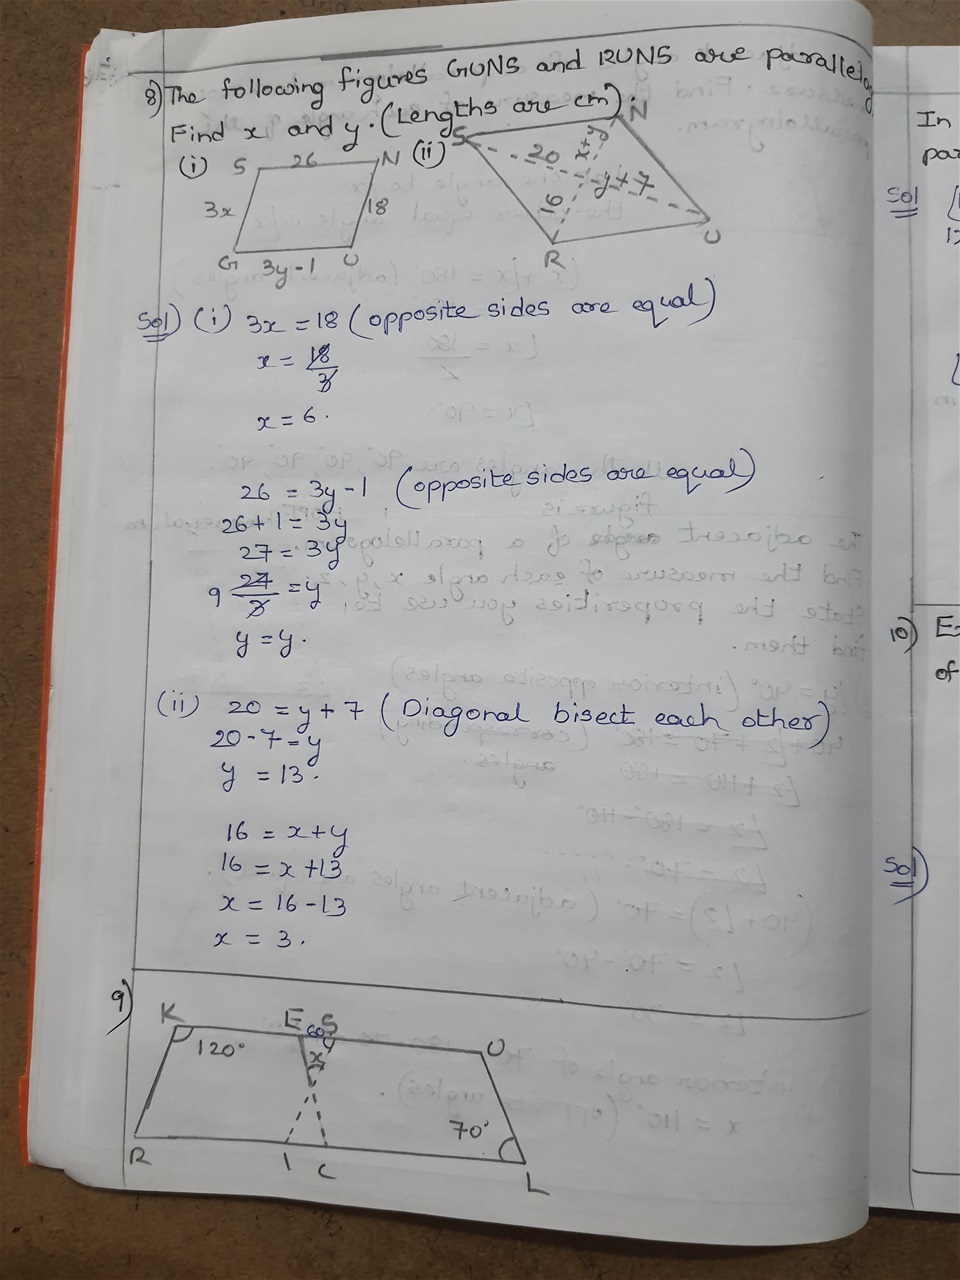 8) The following figures GUNS and RUNS are parallelog
Find x and y. (Lengths are cm):
(i) S 26 N (ii) S N
3x 18 20 x+y y+7 16
G 3y-1 U R U
Sol) (i) 3x = 18 (opposite sides are equal)
x = 18/3
x = 6.
26 = 3y-1 (opposite sides are equal)
26+1 = 3y
27 = 3y
9 27/3 = y
y = y.
(ii) 20 = y+7 (Diagonal bisect each other)
20-7 = y
y = 13.
16 = x+y
16 = x+13
x = 16-13
x = 3.
9)
K E S O
120° 60° y
x
70°
R I C L
In
pa
Sol
10) E
of
Sol)